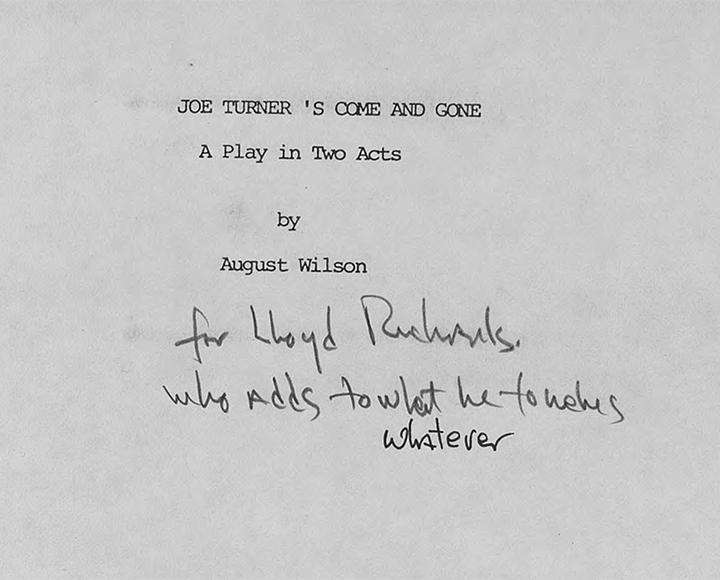 JOE TURNER 'S COME AND GONE
A Play in Two Acts
by
August Wilson
for Lloyd Richards.
who adds to what he touches
whatever